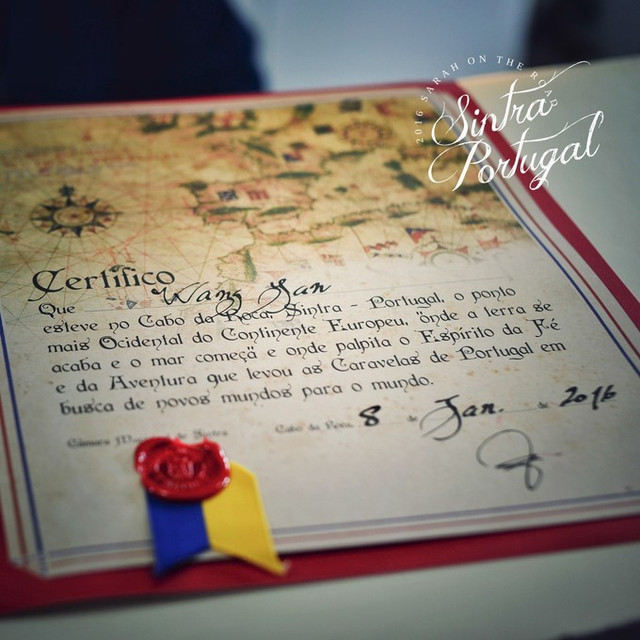 2016 SARAH ON THE ROAD
Sintra
Portugal
Certifico
Que Wang Yan
esteve no Cabo da Roca Sintra - Portugal, o ponto
mais Ocidental do Continente Europeu, "onde a terra se
acaba e o mar começa e onde palpita o Espírito da Fé
e da Aventura que levou as Caravelas de Portugal em
busca de novos mundos para o mundo.
Câmara de Sintra
Cabo da Roca, 8 de Jan. de 2016